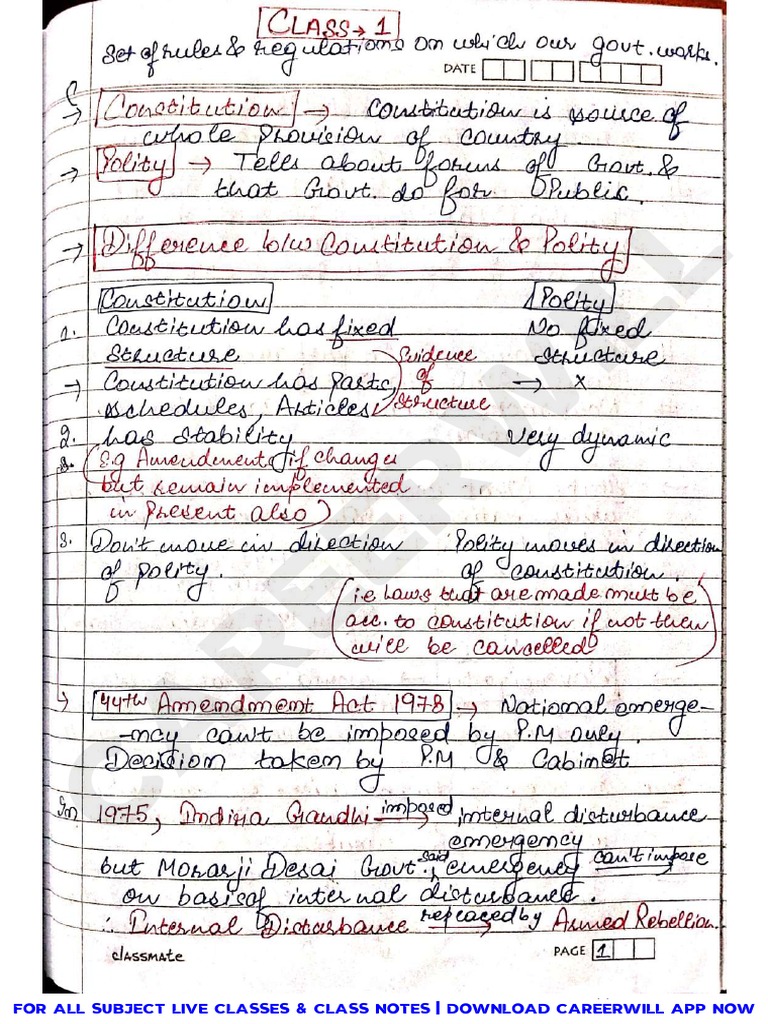 CLASS → 1
Set of rules & regulations on which our govt. works.
DATE
→ Constitution → Constitution is source of
whole provision of country
→ Polity → Tells about forms of Govt. &
that Govt. do for Public.
→ Difference b/w Constitution & Polity
Constitution Polity
1. Constitution has fixed No fixed
Structure Evidence structure
→ Constitution has parts, of → x
schedules, Articles Structure
2. has stability very dynamic
E.g Amendment, if change
but remain implemented
in present also)
3. Don't move in direction Polity moves in direction
of polity. of constitution.
(i.e laws that are made must be
acc. to constitution if not then
will be cancelled)
↳ 44th Amendment Act 1978 → National emerge-
-ncy can't be imposed by P.M only.
Decision taken by P.M & Cabinet
In 1975, Indira Gandhi imposed → internal disturbance
emergency
but Morarji Desai Govt. said, emergency can't impose
on basis of internal disturbance.
∴ Internal Disturbance replaced by → Armed Rebellion.
classmate PAGE 1
CAREERWILL
FOR ALL SUBJECT LIVE CLASSES & CLASS NOTES | DOWNLOAD CAREERWILL APP NOW